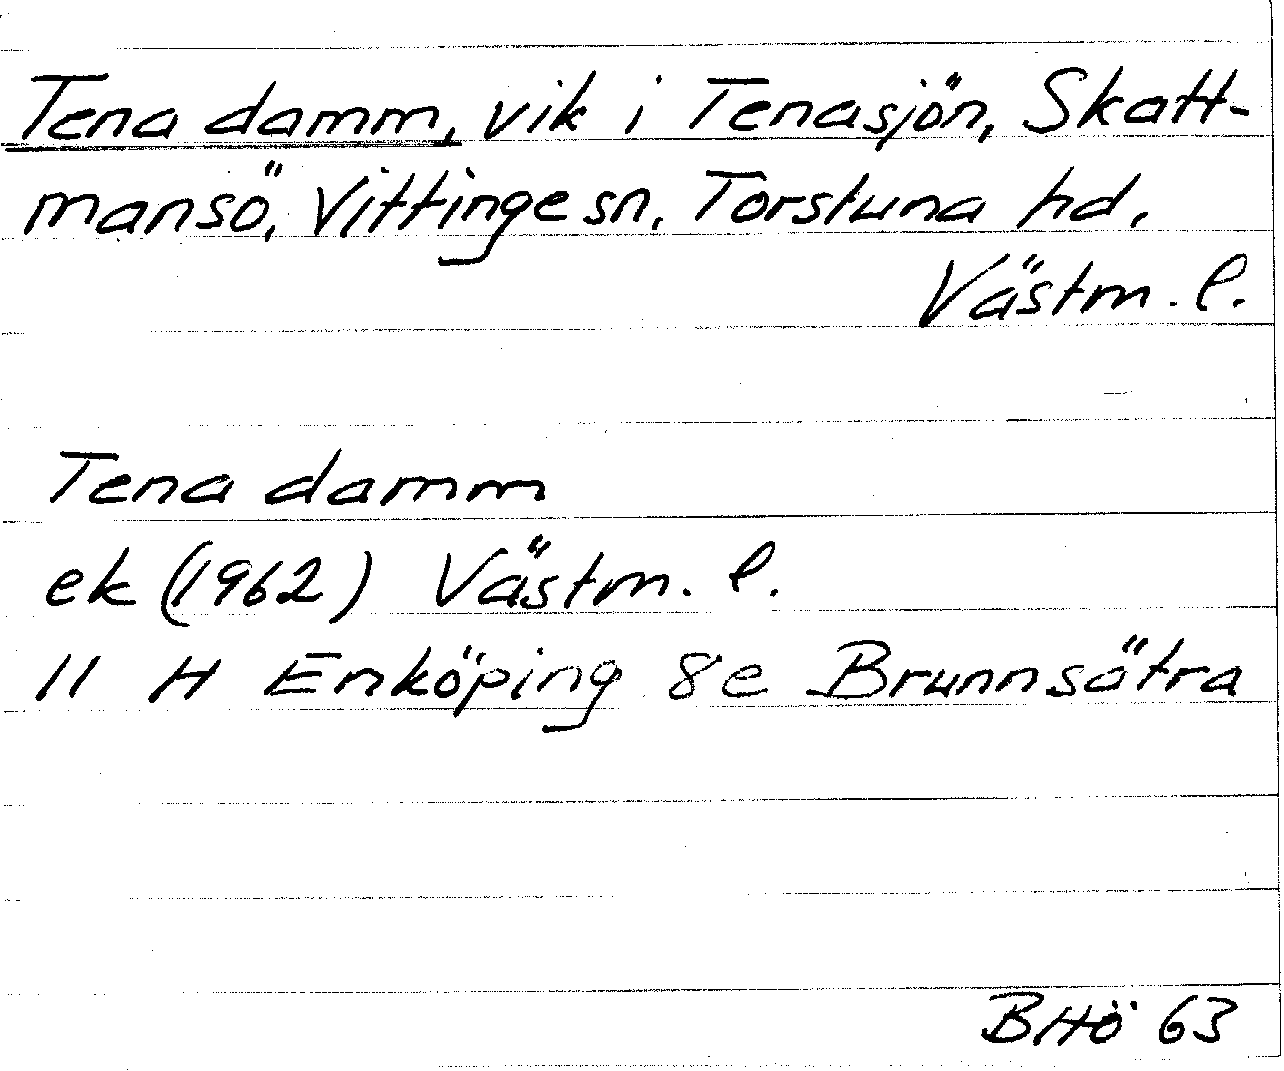 Tena damm, vik i Tenasjön, Skatt-
mansö, Vittinge sn, Torstuna hd,
Västm. l.
Tena damm
ek (1962) Västm. l.
11 H Enköping 8e Brunnsätra
BHÖ 63